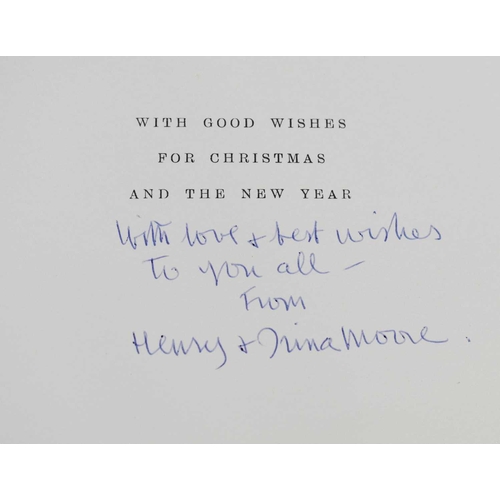 WITH GOOD WISHES
FOR CHRISTMAS
AND THE NEW YEAR
With love + best wishes
To you all –
From
Henry + Irina Moore.